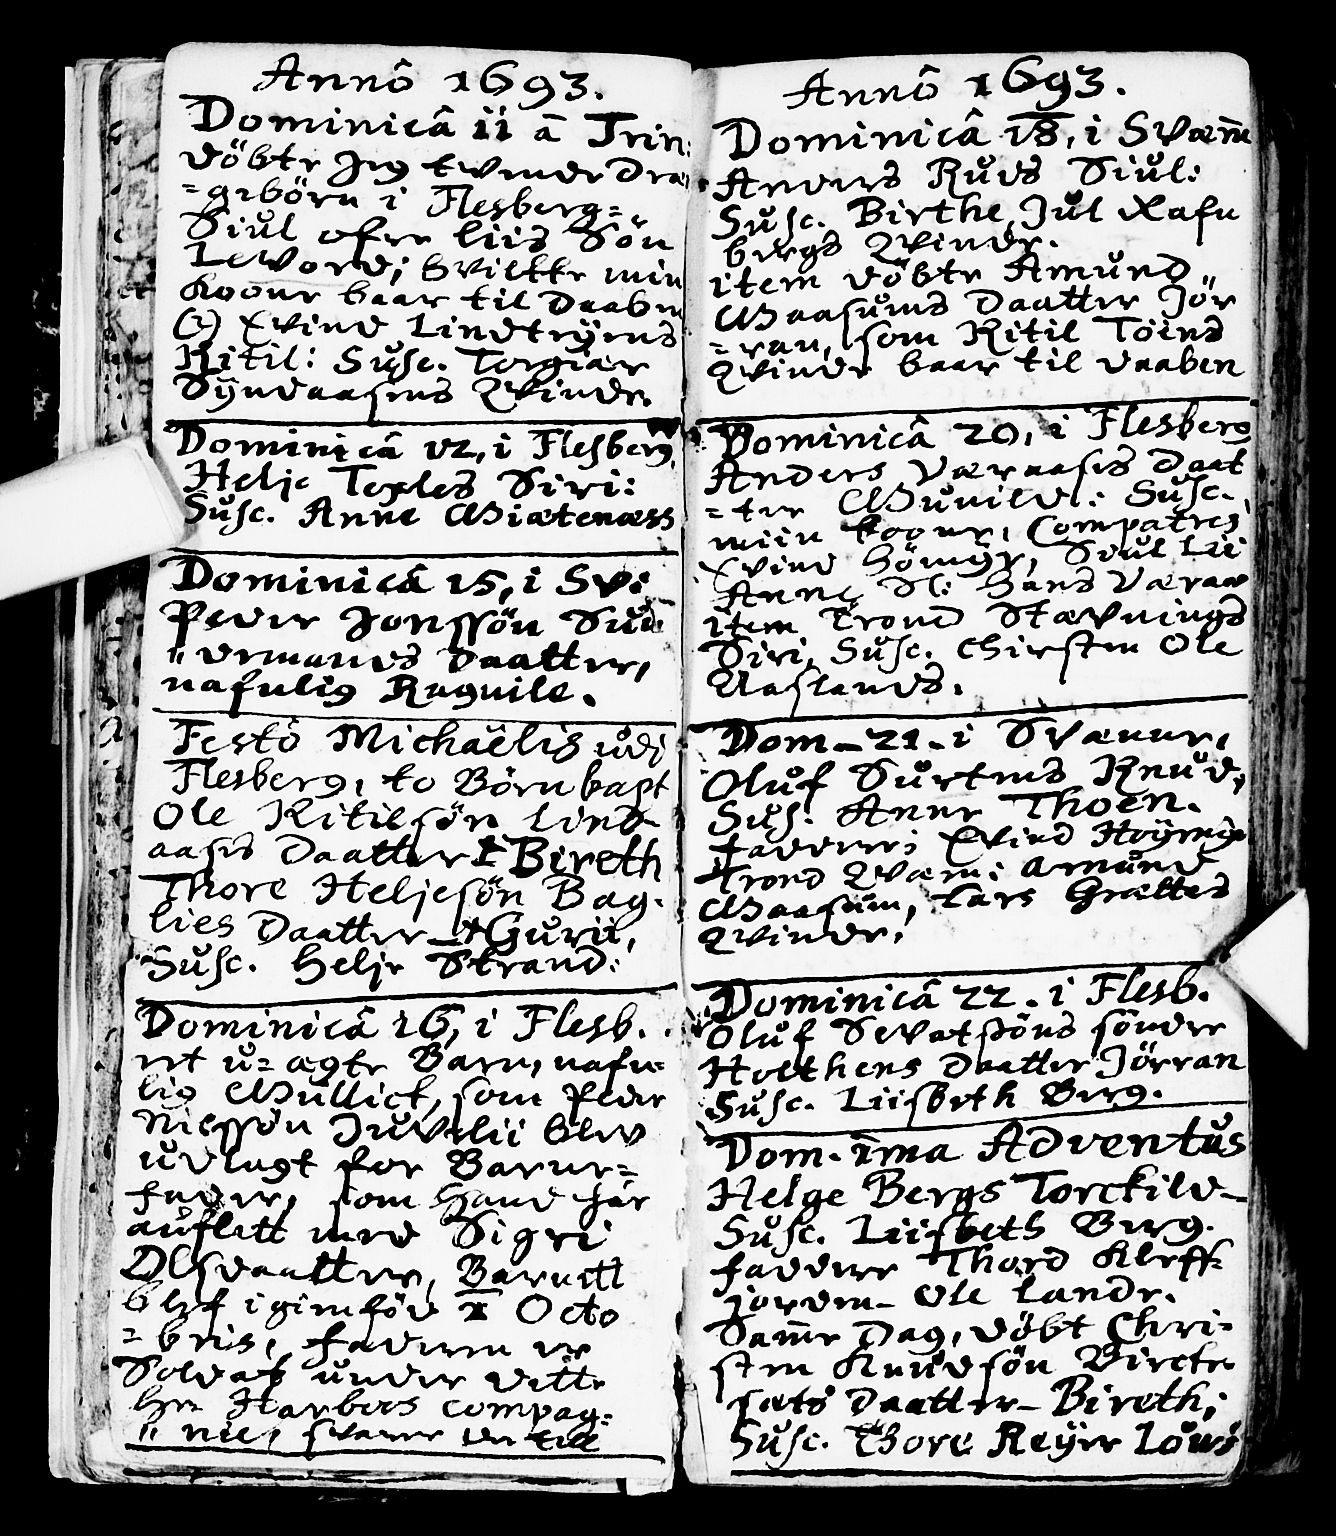 Annô 1693.
Dominicâ 11 â Trin:
döbte Jeg tvende Dren
=gebörn i Flesberg=
Siul ofre liis Sön
LeWord; hvilkke min
koone baar til Daaben
(2) Evind Lindtrÿms
Kitil: Susc. Torgiær
Sÿndaasens Qvinde
Dominicâ 12, i Flesberg
Helje Texles Siri:
Susc. Anne Miætenæss
Dominicâ 15, i Sv:
Peder Jonssön Sun
"dermands Daatter,
nafnlig Ragnile.
Festô Michaëlis udj
Flesberg, to Börn bapt
Ole Kitilsön Lind-
aasis Daatter Bireth
Thore Heljesön Bag-
lies Daatter Gurii,
Susc. Helje Strand:
Dominicâ 16, i Flesb.
ret u=ægte Barn, nafn=
lig Mullick, som Peder
Nielssön Juvelii blev
udlagt for Barne=
fader, som hand har
auflett med Sigri
Olsdaatter, Barnett
blef igien föd 1 Octo
=bris, faderen er
Soldat under ditt
hr Harboes compag=
"nie, svarer der till
Annô 1693.
Dominicâ 18, i Svænn
Anders Ruds Siul:
Susc. Birthe Jul Rafn
bergs Qvinde.
item döbte Amund
Maasums Daatter Jör
=ran, som Kitil Töens
Qvinde baar til daaben
Dominicâ 20, i Flesberg
Anders Væraases Daat
=ter Gunild: Susc.
miin koone, Compatres
Evind Hömÿr, Siul Lii
Anne N: Hans Væraas
item Trond Stævnings
Siri, Susc. Chirsten Ole
Aaslands.
Dom. 21. i Svænne,
Oluf Surtems Knud,
Sus. Anne Thoen.
faddere; Evind Höÿmÿr
Trond Qværn: Amund
Maasum, Lars Grættes
Qvinde.
Dominicâ 22. i Flesb.
Oluf Sevatsöns söndre
Holthens Daatter Jörran
Susc. Liisbeth Berg.
Dom. 1ma Adventus
Helge Bergs Torckild_
Susc. Liisbeth Berg.
faddere Thord Kleff
jorden_ Ole Lande.
Samme Dag, döbt Chri=
sten Knudsön Bircke
sæts Daatter_ Bireth;
Susc. Thore Reÿer Löws